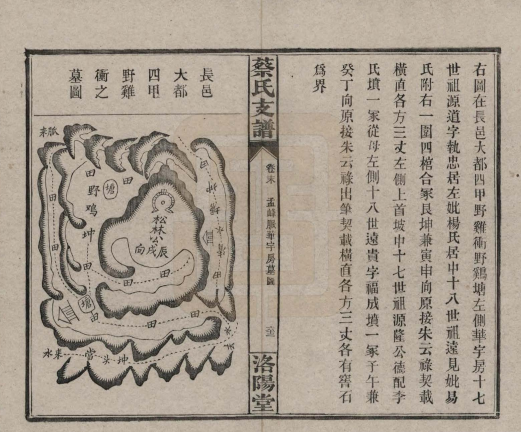 右圖在長邑大都四甲野雞衝野鷄塘左側華字房十七
世祖源道字執忠居左妣楊氏居中十八世祖遠見妣易
氏附右一圍四棺合冢艮坤兼寅申向原接朱云祿契載
橫直各方三丈左側上首坡中十七世祖源隆公德配李
氏墳一冢從母左側十八世遠貴字福成墳一冢子午兼
癸丁向原接朱云祿出筆契載橫直各方三丈各有窖石
爲界
蔡氏支譜
卷末
孟緯胍華字房墓圖
洛陽堂
長邑
大都
四甲
野雞
衝之
墓圖
脈來
田
野鷄坤
塘
田
松林公
辰戌向
田
田
塘
田
水來
當
頭坤